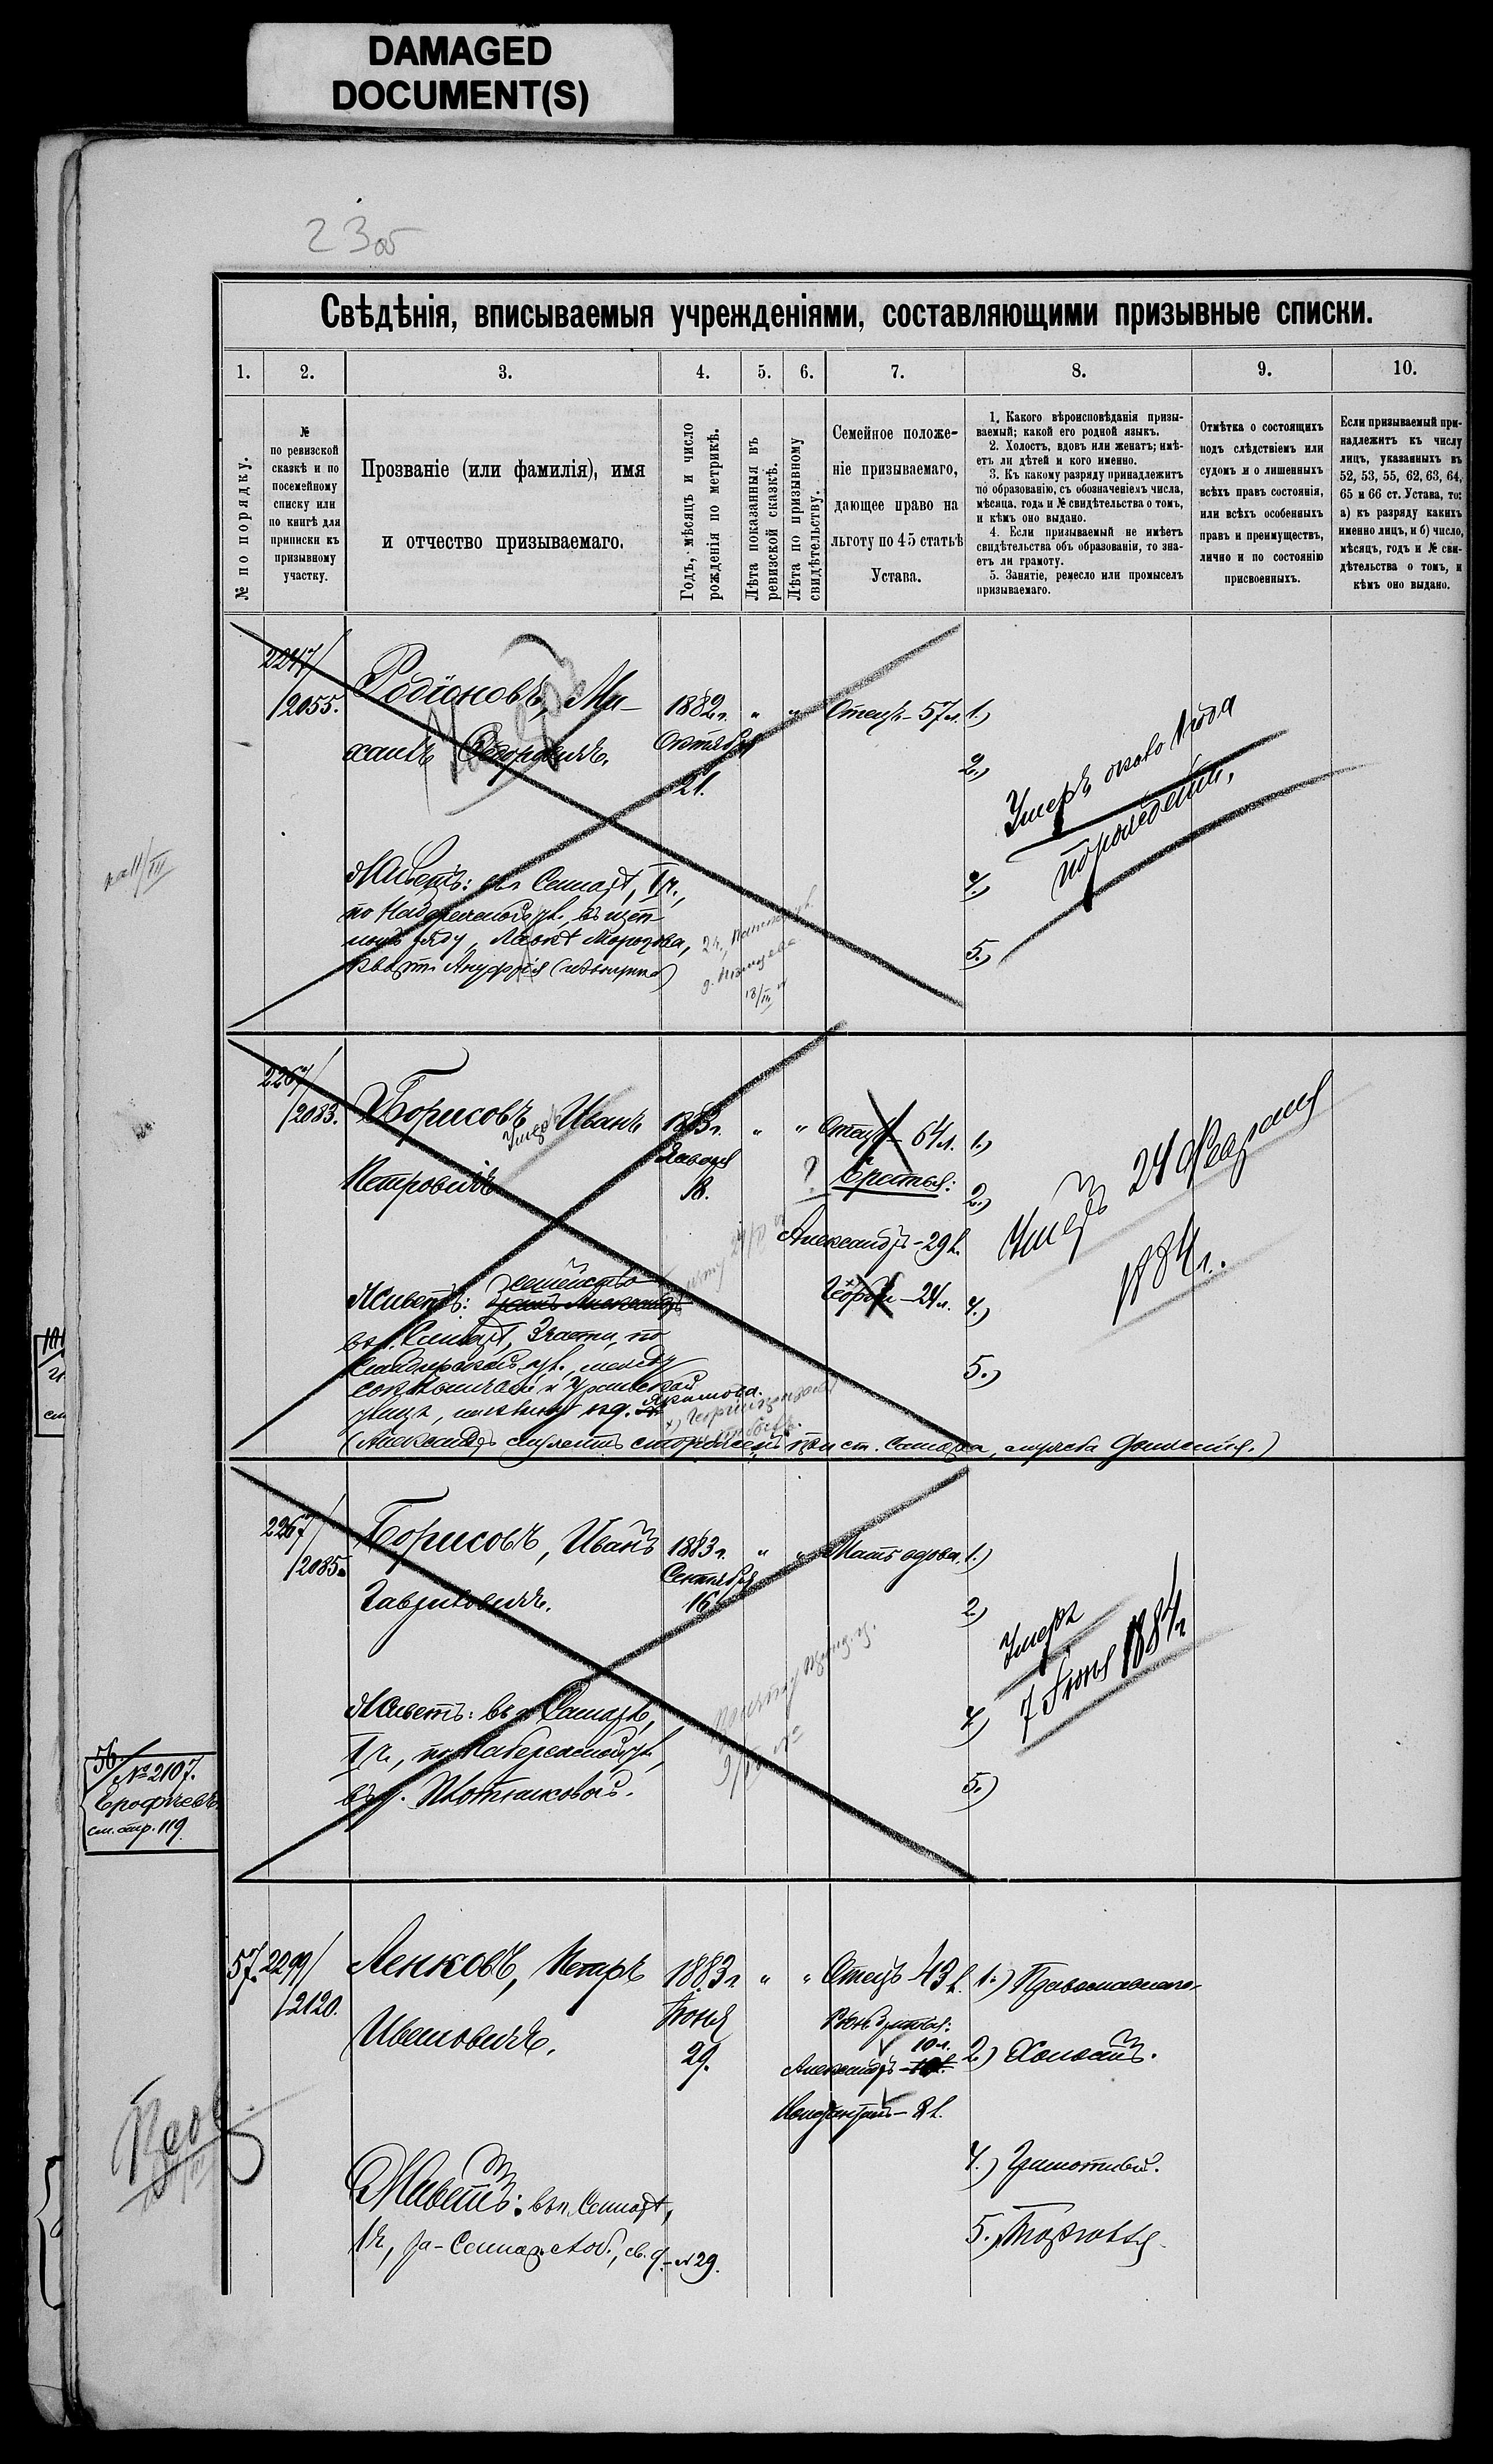 DAMAGED
DOCUMENT(S)
23 об
Свѣдѣнія, вписываемыя учрежденіями, составляющими призывные списки.
1. 2. 3. 4. 5. 6. 7. 8. 9. 10.
№ по порядку.
№
по ревизской
сказкѣ и по
посемейному
списку или
по книгѣ для
приписки къ
призывному
участку.
Прозваніе (или фамилія), имя
и отчество призываемаго.
Годъ, мѣсяцъ и число
рожденія по метрикѣ.
Лѣта показанныя въ
ревизской сказкѣ.
Лѣта по призывному
свидѣтельству.
Семейное положе-
ніе призываемаго,
дающее право на
льготу по 45 статьѣ
Устава.
1. Какого вѣроисповѣданія призы-
ваемый; какой его родной языкъ.
2. Холостъ, вдовъ или женатъ; имѣ-
етъ ли дѣтей и кого именно.
3. Къ какому разряду принадлежитъ
по образованію, съ обозначеніемъ числа,
мѣсяца, года и № свидѣтельства о томъ,
и кѣмъ оно выдано.
4. Если призываемый не имѣетъ
свидѣтельства объ образованіи, то зна-
етъ ли грамоту.
5. Занятіе, ремесло или промыселъ
призываемаго.
Отмѣтка о состоящихъ
подъ слѣдствіемъ или
судомъ и о лишенныхъ
всѣхъ правъ состоянія,
или всѣхъ особенныхъ
правъ и преимуществъ,
лично и по состоянію
присвоенныхъ.
Если призываемый при-
надлежитъ къ числу
лицъ, указанныхъ въ
52, 53, 55, 62, 63, 64,
65 и 66 ст. Устава, то:
а) къ разряду какихъ
именно лицъ, и б) число,
мѣсяцъ, годъ и № сви-
дѣтельства о томъ, и
кѣмъ оно выдано.
2247/
/2055.
Родіоновъ, Ми-
хаилъ Ѳедоровичъ.
1882 г. " "
Октября
21.
Отецъ - 57 л.
1.)
2.)
4.)
5.)
Умеръ около 1 года
Живетъ: въ г. Самарѣ, 1 ч.,
2267/
/2083.
Борисовъ, Иванъ
Умеръ
Петровичъ
1883 г. " "
Января
18.
Отецъ - 64 л.
?
Братья:
Александръ - 29 л.
Георгій - 24 л.
1.)
2.)
4.)
5.)
Умеръ 24 Февраля
1884 г.
Живетъ: семейство
братъ Александръ
въ г. Самарѣ, 3 части, по
(Александръ служитъ сторожемъ при ст. Самара, служба движенія.)
2267/
/2085.
Борисовъ, Иванъ
Гавриловичъ.
1883 г. " "
Сентября
16.
Мать вдова.
1.)
2.)
4.)
5.)
Умеръ
7 Іюня 1884 г.
Живетъ: въ г. Самарѣ,
1 ч., по Набережной ул.,
въ д. Плотниковой.
56.
№ 2107.
Ерофѣевъ
см. стр. 119.
57. 2299/
/2120.
Ленковъ, Петръ
Ивановичъ.
1883 г. " "
Іюня
29.
Отецъ 43 л.
Родн. братья:
10 л.
Александръ
Константинъ - 8 л.
1.) Православнаго.
2.) Холостъ.
4.) Грамотный.
5.) Торговля.
Живетъ: въ г. Самарѣ,
1 ч,
д. № 29.